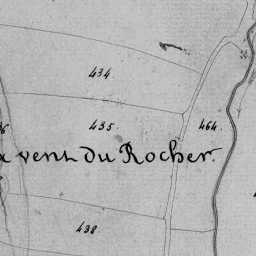 434
435
464
vent du Rocher.
438